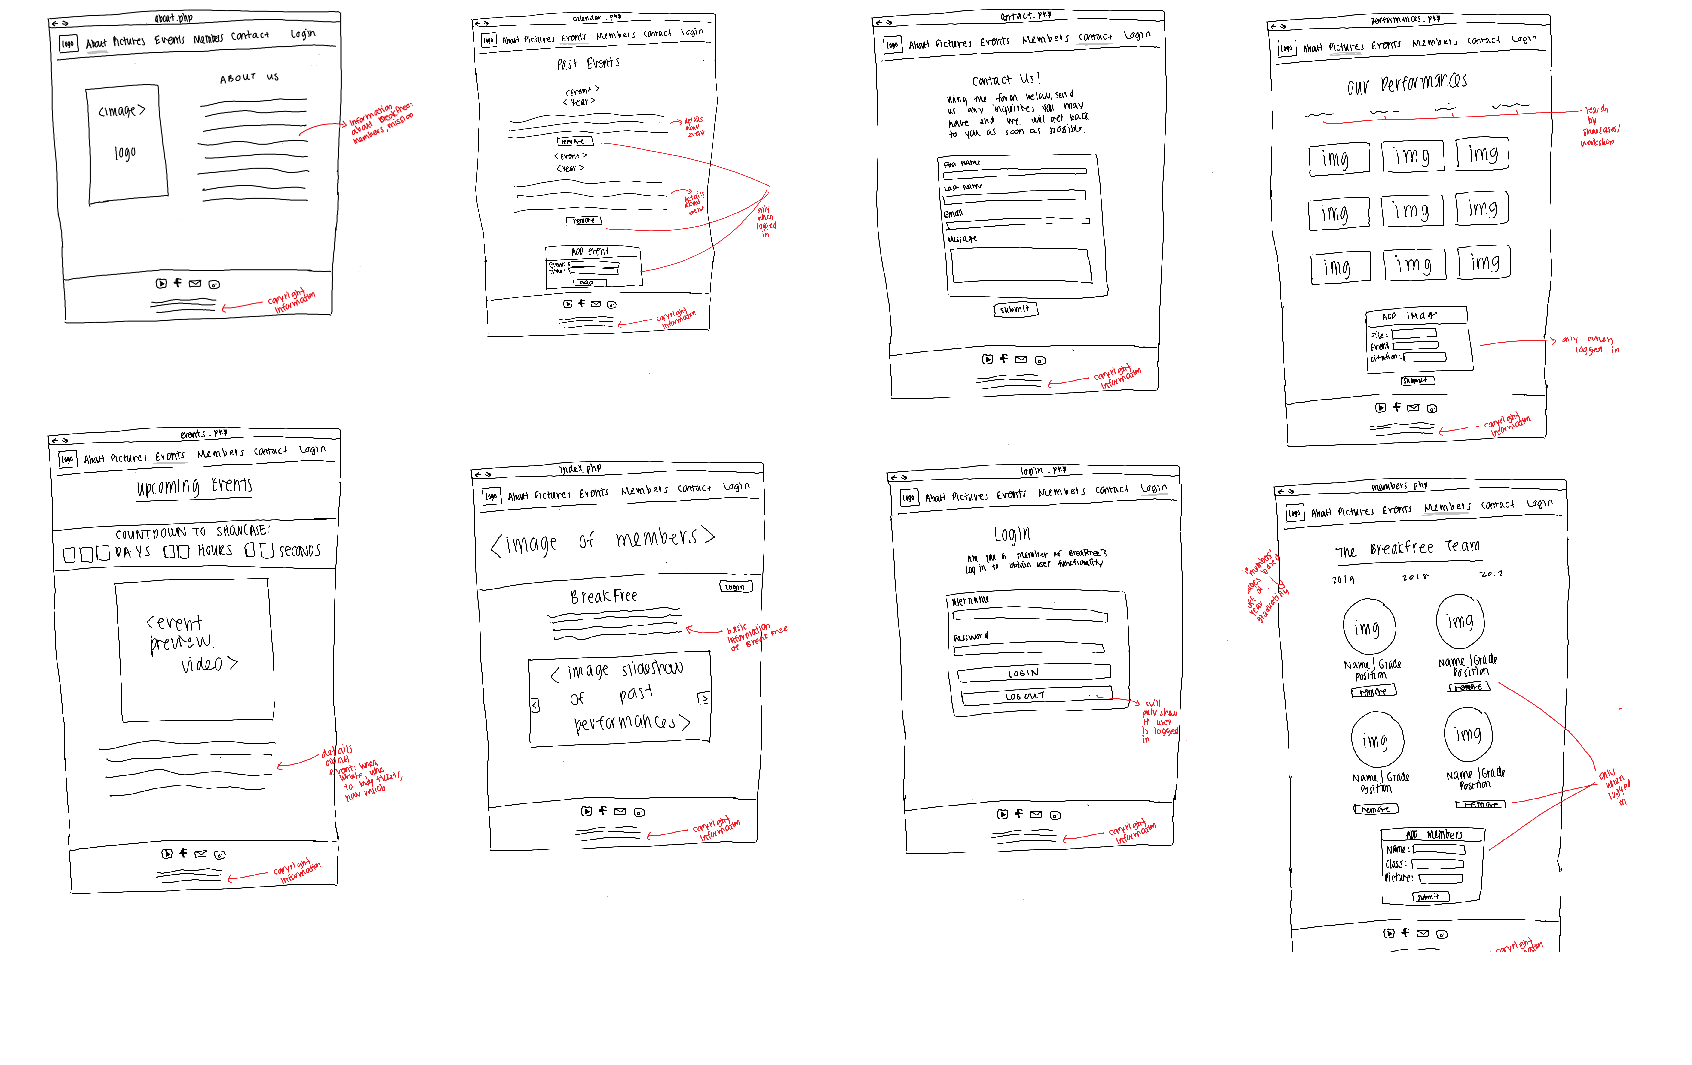 about.php
logo About Pictures Events Members Contact Login
ABOUT US
<image>
logo
information
about BreakFree:
members, mission
copyright
information
calendar.php
logo About Pictures Events Members Contact Login
Past Events
<Event>
<Year>
details
about
event
remove
<Event>
<Year>
details
about
event
remove
only
when
logged
in
ADD Event
copyright
information
contact.php
logo About Pictures Events Members Contact Login
Contact Us!
Using the form below, send
us any inquiries you may
have and we will get back
to you as soon as possible.
First Name
Last Name
Email
Message
submit
copyright
information
performances.php
logo About Pictures Events Members Contact Login
Our Performances
search
by
showcases/
workshop
img img img
img img img
img img img
ADD image
File:
Event:
Citation:
submit
only when
logged in
copyright
information
events.php
logo About Pictures Events Members Contact Login
Upcoming Events
COUNTDOWN TO SHOWCASE:
DAYS HOURS SECONDS
<event
preview
video>
details
about
event: when,
where,
to buy tickets,
how much
copyright
information
index.php
logo About Pictures Events Members Contact Login
<image of members>
Login
BreakFree
basic
information
of BreakFree
< image slideshow
of past
performances>
< >
copyright
information
login.php
logo About Pictures Events Members Contact Login
Login
Are you a member of BreakFree?
Log in to obtain user functionality
Username
Password
LOGIN
LOGOUT
will
only show
if user
is logged
in
copyright
information
members.php
logo About Pictures Events Members Contact Login
The BreakFree Team
2019 2018 2017
"members"
based
off of
year
img img
Name | Grade Name | Grade
Position Position
remove remove
img img
Name | Grade Name | Grade
Position Position
remove remove
only
when
logged
in
ADD Members
Name:
Class:
Picture:
submit
copyright
information